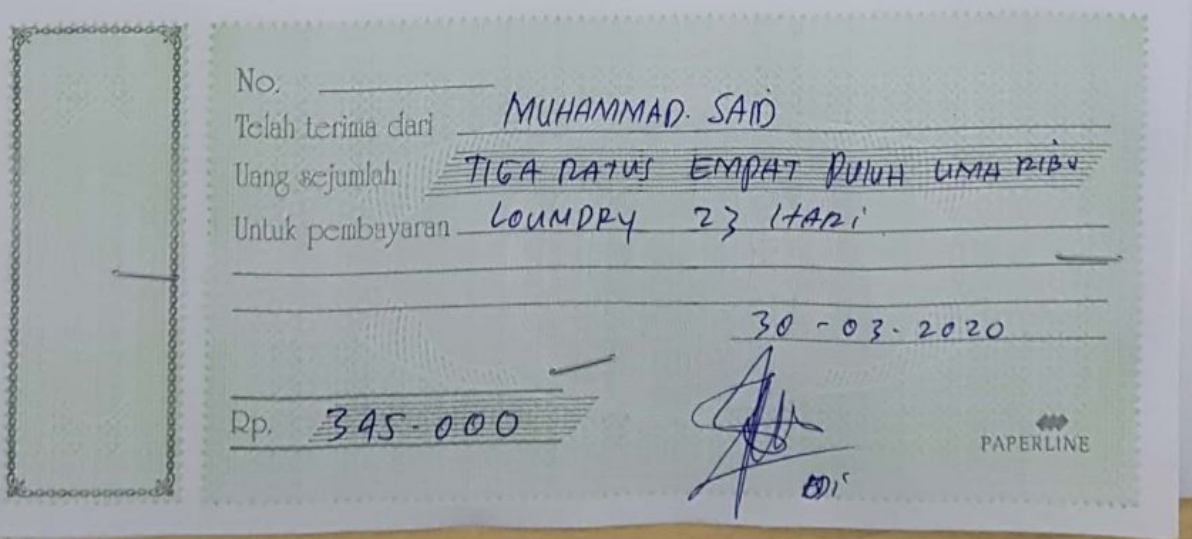 No.
Telah terima dari MUHAMMAD. SAID
Uang sejumlah TIGA RATUS EMPAT PULUH LIMA RIBU
Untuk pembayaran LOUMDRY 23 HARI
30 - 03 - 2020
Rp. 345.000
EDi
PAPERLINE